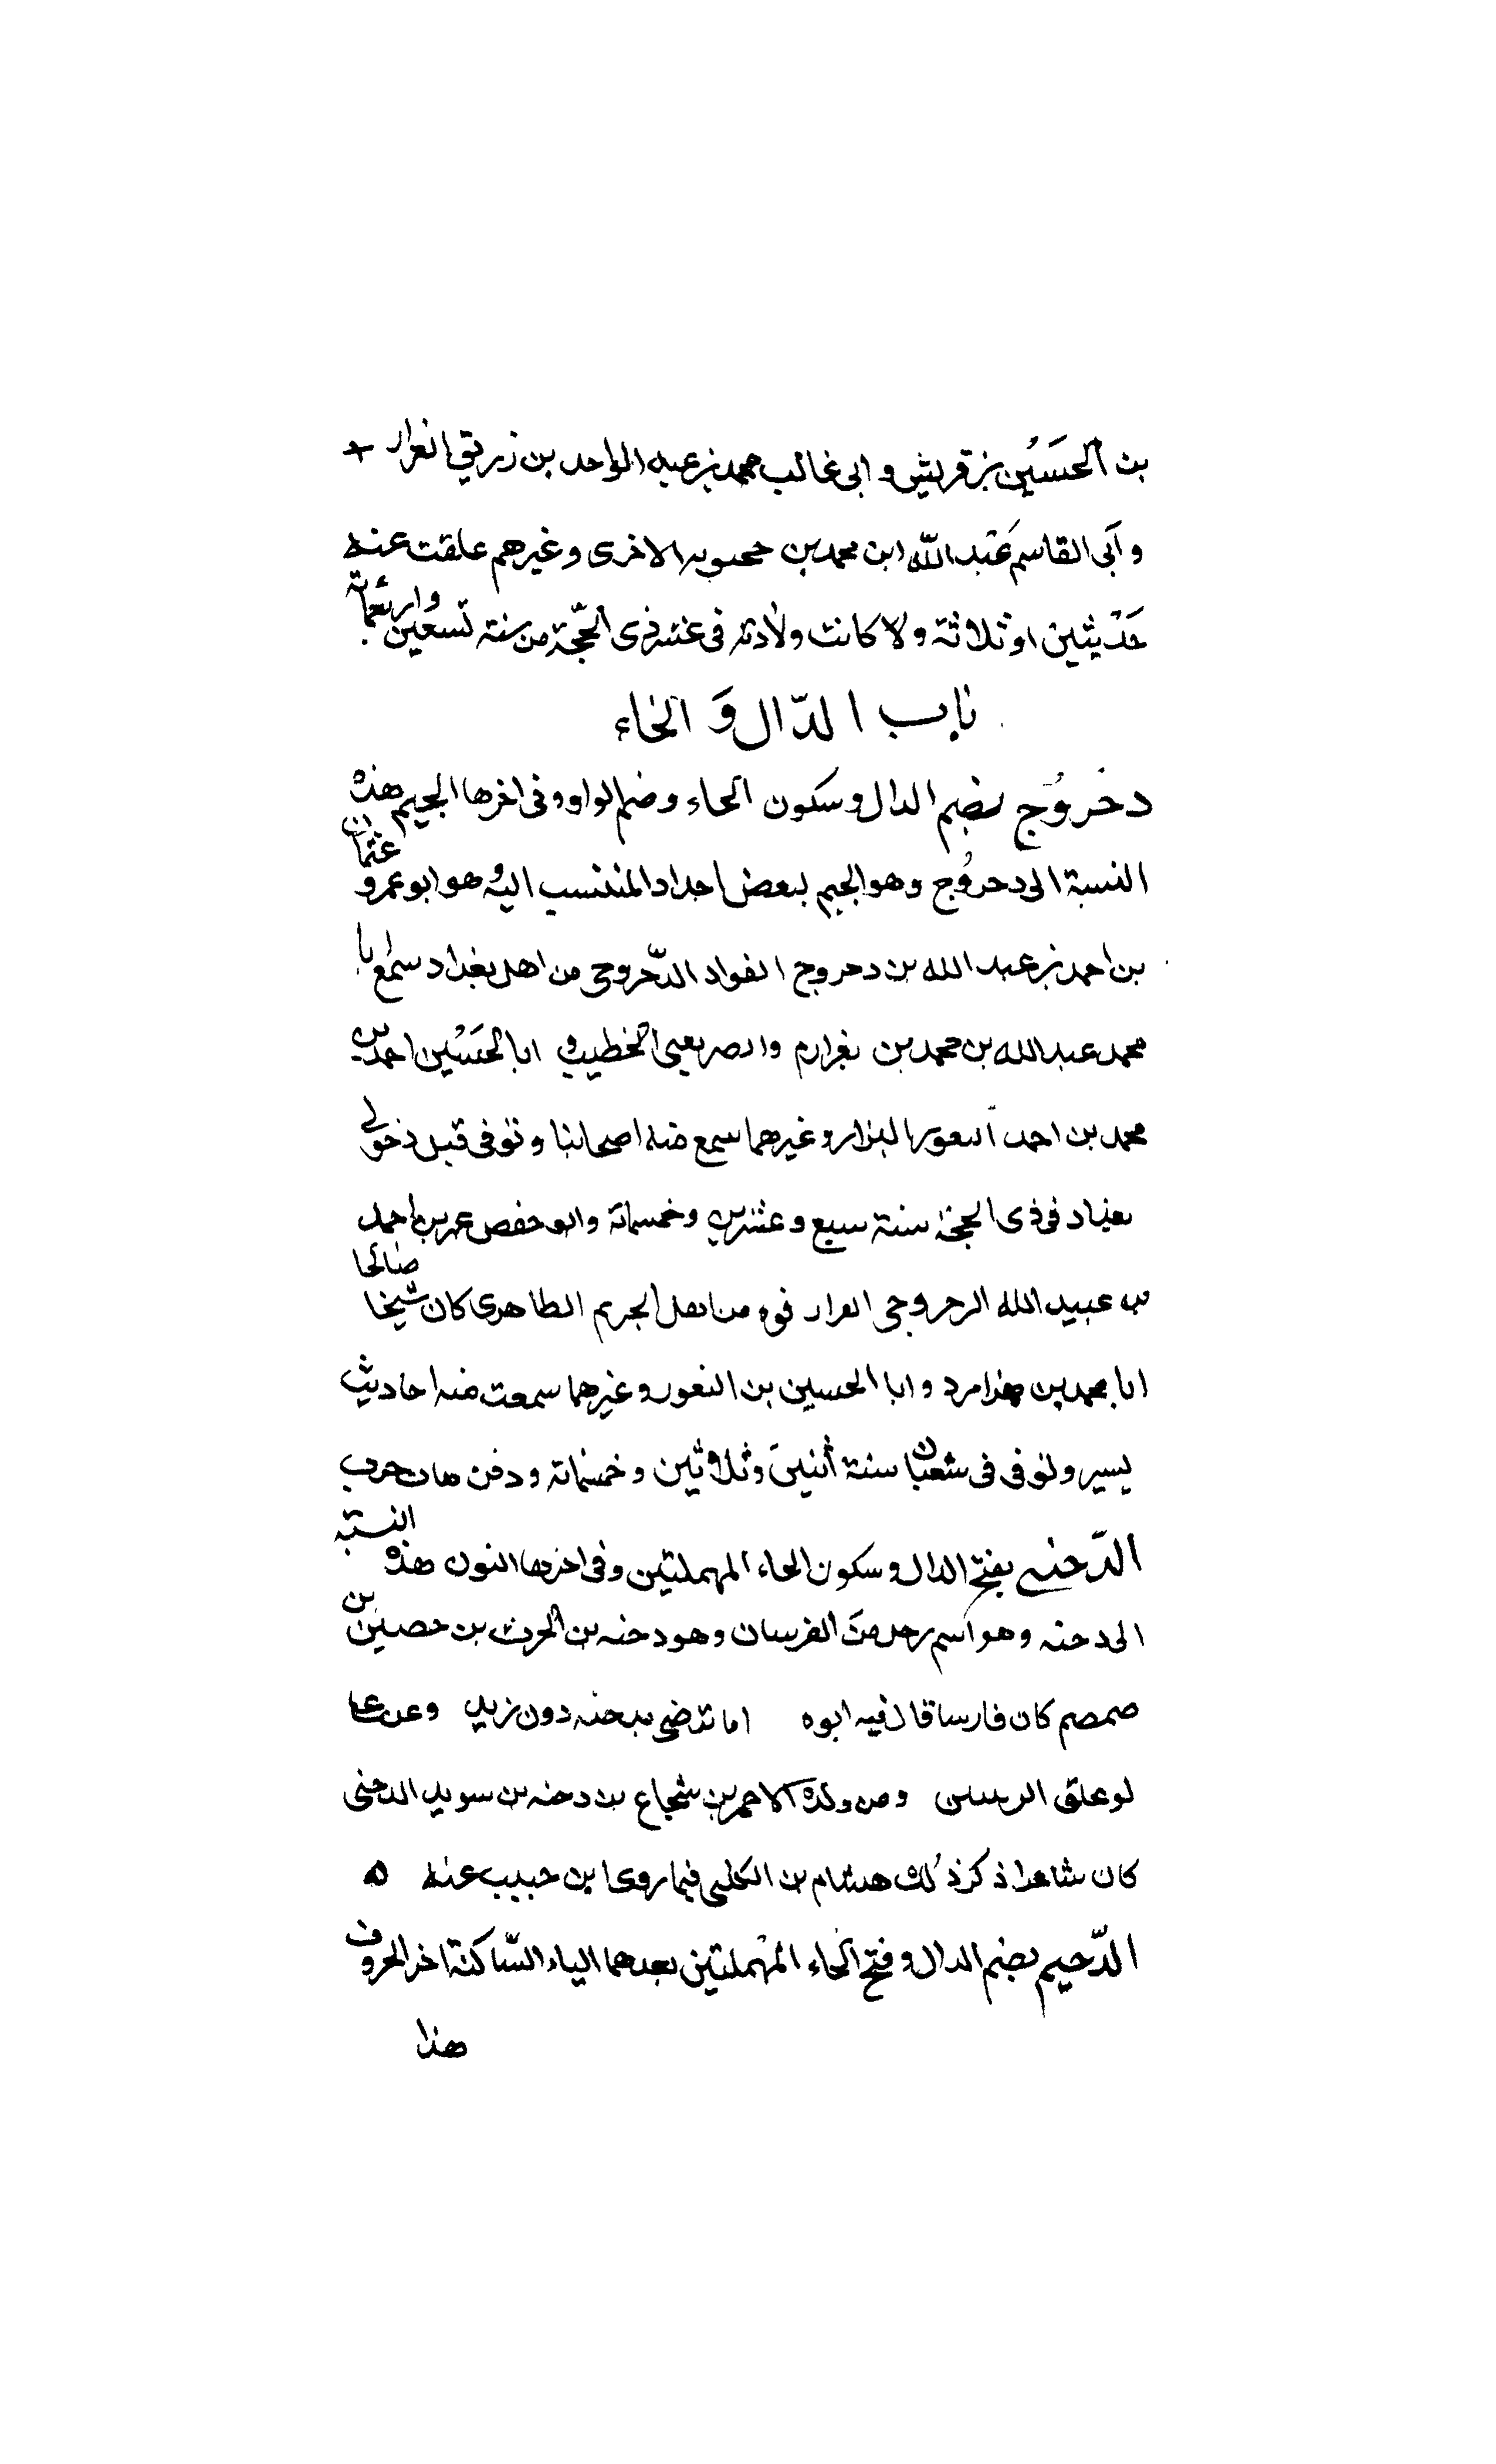 بن الحَسَيْن بن قريش و ابى غالب محمد بن عبد الواحد بن زريق القزاز
و أبى القاسم عَبْد اللّه ابن محمد بن الاخرى وغيرهم علقت عنه
حَدْيثين او ثلاثة ولا كانت ولادته فى عشر ذى الحجّة من سنة تسعين واربعمائة
باب الدّال وَ الحاء
دحروُج بضم الدال وسكون الحاء وضم الواو وفى اخرها الجيم هذه
النسبة الى دحروُج وهو الجيم لبعض اجداد المنتسب اليه وهو ابو عمرو عثمان
بن احمد بن عبد الله بن دحروج الدّحروجى من اهل بغداد سمع ابا
محمد عبد الله بن محمد بن الخطيب و ابا الحَسَيْن احمد بن
محمد بن احمد البزاز وغيرهما سمع منه اصحابنا وتوفى قبل دخولى
بغداد فى ذى الحجة سنة سبع وعشرين وخمسمائة وابو حفص عمر بن احمد
بن عبيد الله الدحروجى من اهل الحريم الطاهرى كان شيخا صالحا
ابا محمد بن وابا الحسين بن النقور وغيرهما سمعت منه احاديث
يسير وتوفى فى شعبان سنة أثنين وثلاثين وخمسمائة ودفن حرب
الدّحنى بفتح الدال وسكون الحاء المهملتين وفى اخرها النون هذه النسبة
الى دحنه وهو اسم رجل من الفرسان وهو دحنه بن الحرث بن حصين بن
صمصم كان فارسا قال فيه ابوه اما ترضى بدحنه دون زيد
ومن ولده الاحمر بن شجاع بن دحنه بن سويد الدحنى
كان شاعرا ذكر ذلك هشام بن الكلبى فيما روى ابن حبيب عنه ه
الدّحيم بضم الدال وفتح الحاء المهملتين بعدهما الياء السّاكنة اخر الحروف
هذا